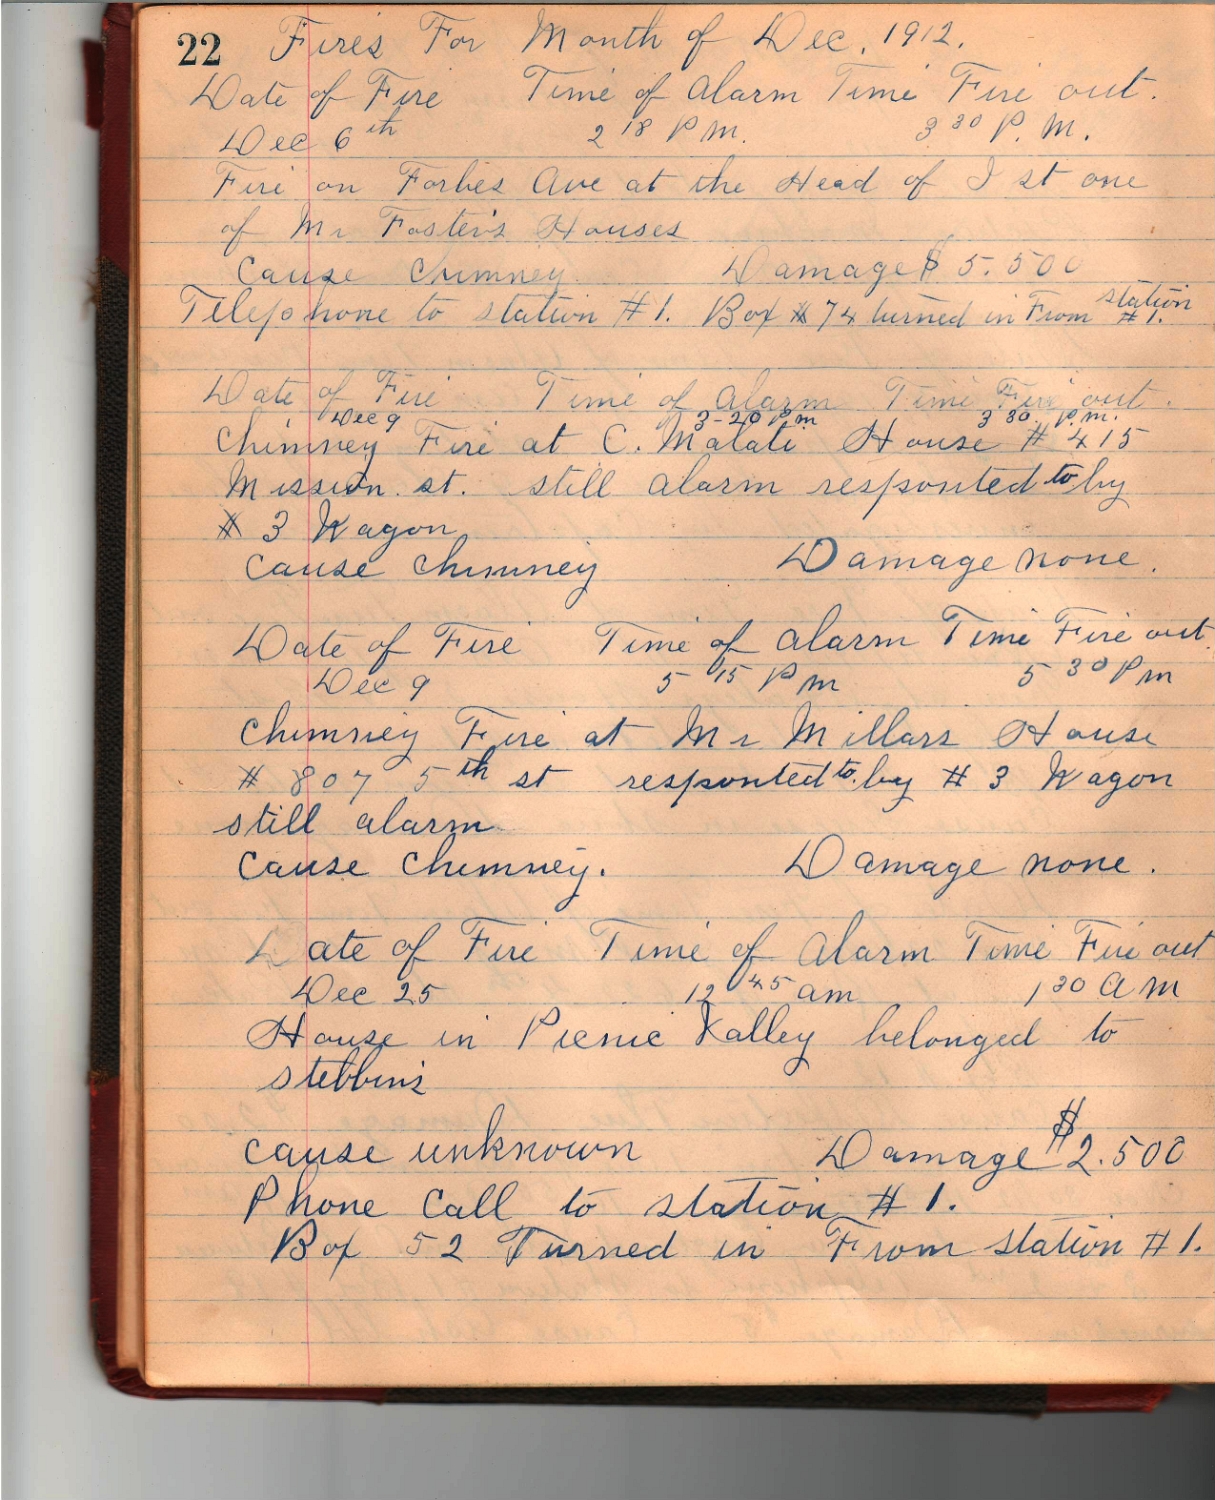 22 Fires For Month of Dec. 1912.
Date of Fire Time of Alarm Time Fire out.
Dec 6th 2 18 P M. 3 30 P. M.
Fire on Forbes Ave at the Head of I st one
of Mr Foster's Houses
Cause Chimney Damage $ 5.500
Telephone to station #1. Box # 74 turned in From station #1.
Date of Fire Time of Alarm Time Fire out.
Dec 9 3-20 Pm 3 30 P.m.
Chimney Fire at C. Malati House # 415
Mission. st. still alarm responted to by
# 3 Wagon
Cause Chimney Damage none.
Date of Fire Time of Alarm Time Fire out.
Dec 9 5 15 P m 5 30 P m
Chimney Fire at Mr Millars House
# 807 5th st responted to. by # 3 Wagon
still alarm
Cause Chimney. Damage none.
Date of Fire Time of Alarm Time Fire out
Dec 25 12 45 am 1 30 A M
House in Picnic Valley belonged to
Stebbins
Cause unknown Damage $2.500
Phone Call to station #1.
Box 52 Turned in From station #1.